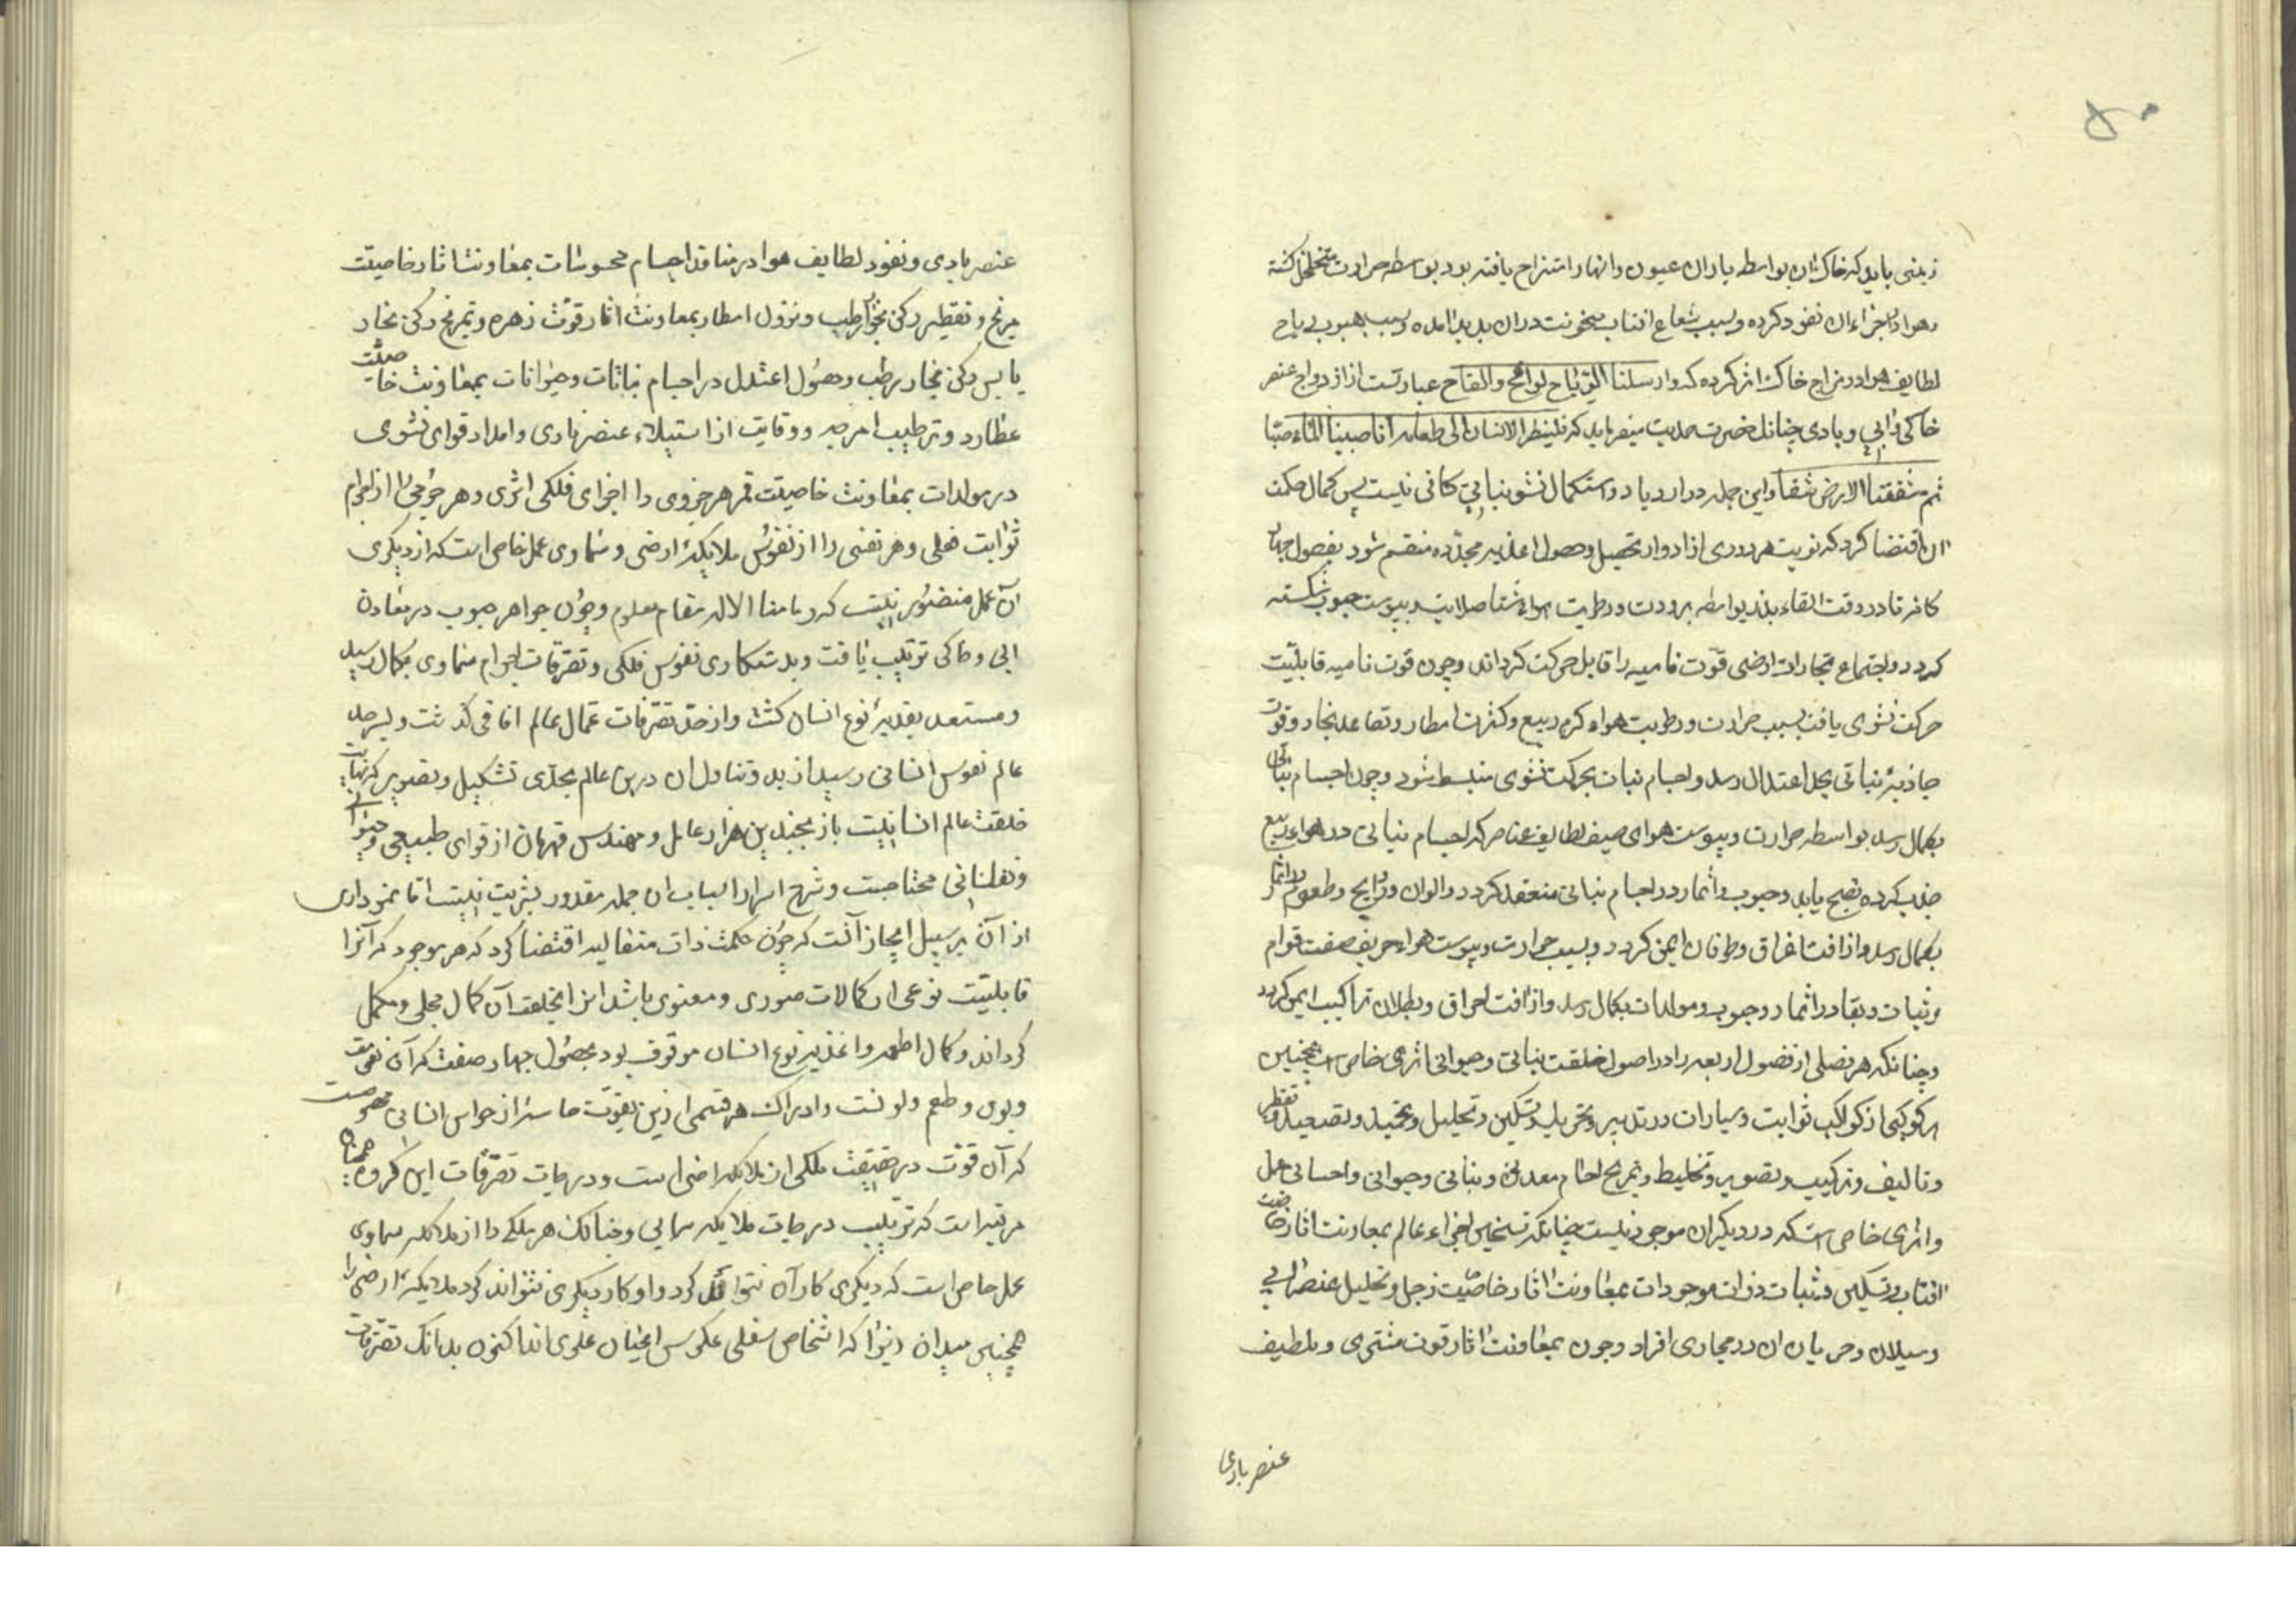 ۵۰
زمینی باید که خاک ان بواسطه باران عیون وانهار امتزاج یافته بود بواسطه حرارت متخلخل کشته
وهوا در اجزاء ان نفود کرده وبسبب شعاع افتاب سخونت دران پدید امده وبسبب هبوب ریاح
لطایف هوا در مزاج خاک اثر کرده که وارسلنا الریاح لواقح والقاح عبارتست از ازدواج عنصر
خاکی وابی وبادی چنانک حضرت صمدیت میفرماید که فلینظر الانسان الی طعامه انا صببنا الماء صبا
ثم شققنا الارض شقا واین جمله در ازدیاد واستکمال نشو نباتی کافی نیست پس کمال حکمت
ان اقتضا کرد که تربیت هر دوری از ادوار تحصیل وحصول اغذیه مجدده منقسم شود بفصول چهار
کانه تا در وقت القاء بذر بواسطه برودت ورطوبت هواء شتا صلابت ویبوست حبوب شکسته
کردد واجتماع بخارات ارضی قوت نامیه را قابل حرکت کرداند وچون قوت نامیه قابلیت
حرکت نشوی یافت بسبب حرارت ورطوبت هواء کرم ربیع وکثرت امطار وتصاعد بخار وقوت
جاذبۀ نباتی بحد اعتدال رسد واجسام نبات بحرکت نشوی منبسط شود وچون اجسام نباتی
بکمال رسد بواسطه حرارت ویبوست هوای صیف لطایف عناصر که اجسام نباتی در هواء ربیع
جذب کرده نضج یابد وحبوب واثمار در اجسام نباتی منعقد کردد والوان وروایح وطعوم در اثمار
بکمال رسد واز افت اغراق وطوفان ایمن کردد وبسبب حرارت ویبوست هواء خریف صفت قوام
وثبات وبقا در اثمار وحبوب ومولدات بکمال رسد واز افت احراق وبطلان تراکیب ایمن کردد
وچنانکه هر فصلی از فصول اربعه را در اصول خلقت نباتی وحیوانی اثری خاص است همچنین
هر کوکبی از کواکب ثوابت وسیارات در تدبیر وتحریک وتسکین وتحلیل وتجمید وتصعید وتقطیر
وتالیف وترکیب وتصویر وتخلیط وتمزیج اجسام معدنی ونباتی وحیوانی واحسانی عمل
واثری خاص است که در دیکران موجود نیست چنانکه تسخین اجزاء عالم بمعاونت اثار خاصیت
افتاب وتسکین وثبات ذرات موجودات بمعاونت اثار خاصیت زحل وتحلیل عنصر ابی
وسیلان وجریان ان در مجاری افراد وجود بمعاونت اثار قوت مشتری وتلطیف
عنصر بادی
عنصر بادی ونفود لطایف هوا در منافذ اجسام محسوسات بمعاونت اثار خاصیت
مریخ وتقطیر رکن بخار رطب ونزول امطار بمعاونت اثار قوت زهره وتمزیج رکن بخار
یابس برکن بخار رطب وحصول اعتدال در اجسام نباتات وحیوانات بمعاونت خاصیت
عطارد وترطیب امزجه ووقایت از استیلاء عنصر ناری وامداد قوای نشوی
در مولدات بمعاونت خاصیت قمر هر جزوی را اجزای فلکی اثری وهر جرمی را از اجرام
ثوابت فعلی وهر نفسی را از نفوس ملایکۀ ارضی وسماوی عمل خاص است که از دیکری
آن عمل متصور نیست که وما منا الا له مقام معلوم وچون جواهر حبوب در معادن
ابی وخاکی ترتیب یافت وبدستکاری نفوس فلکی وتصرفات اجرام سماوی بکمال رسید
ومستعد تغذیۀ نوع انسان کشت واز حد تصرفات عمال عالم افاقی کذشت وبسرحد
عالم نفوس انسانی رسید از بدو تناول ان درین عالم بجدی تشکیل وتصویر که نهایت
خلقت عالم انسانیت باز بچندین هزار عامل ومهندس قهرمان از قوای طبیعی وحیوانی
ونفسانی محتاجست وشرح اسرار اسباب ان جمله مقدور بشریت نیست اما نموداری
از آن بر سبیل ایجاز آنست که چون حکمت ذات متعالیه اقتضا کرد که هر موجود که آنرا
قابلیت نوعی از کمالات صوری ومعنوی باشد انرا بخلعت آن کمال مجلی ومکمل
کرداند وکمال اطعمه واغذیه نوع انسان موقوف بود بحصول چهار صفت که آن نعومت
وبوی وطعم ولونست وادراک هر قسمی ازین بقوت حاسۀ از حواس انسانی مخصوصست
که آن قوت در حقیقت ملکی از ملائکه ارضی است ودرجات تصرفات این کروه همچنان
مرتبه است که ترتیب درجات ملایکه سمایی وچنانک هر ملکی را از ملائکه سماوی
عمل خاص است که دیکری کار آن نتواند کرد واو کار دیکری نتواند کرد ملایکۀ ارضی را
همچنین میدان زیرا که اشخاص سفلی عکوس اعیان علوی اند اکنون بدانک تصرفات